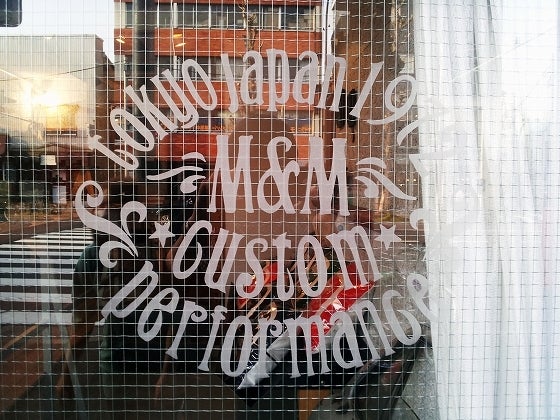 tokyo japan
M&M
custom
performance